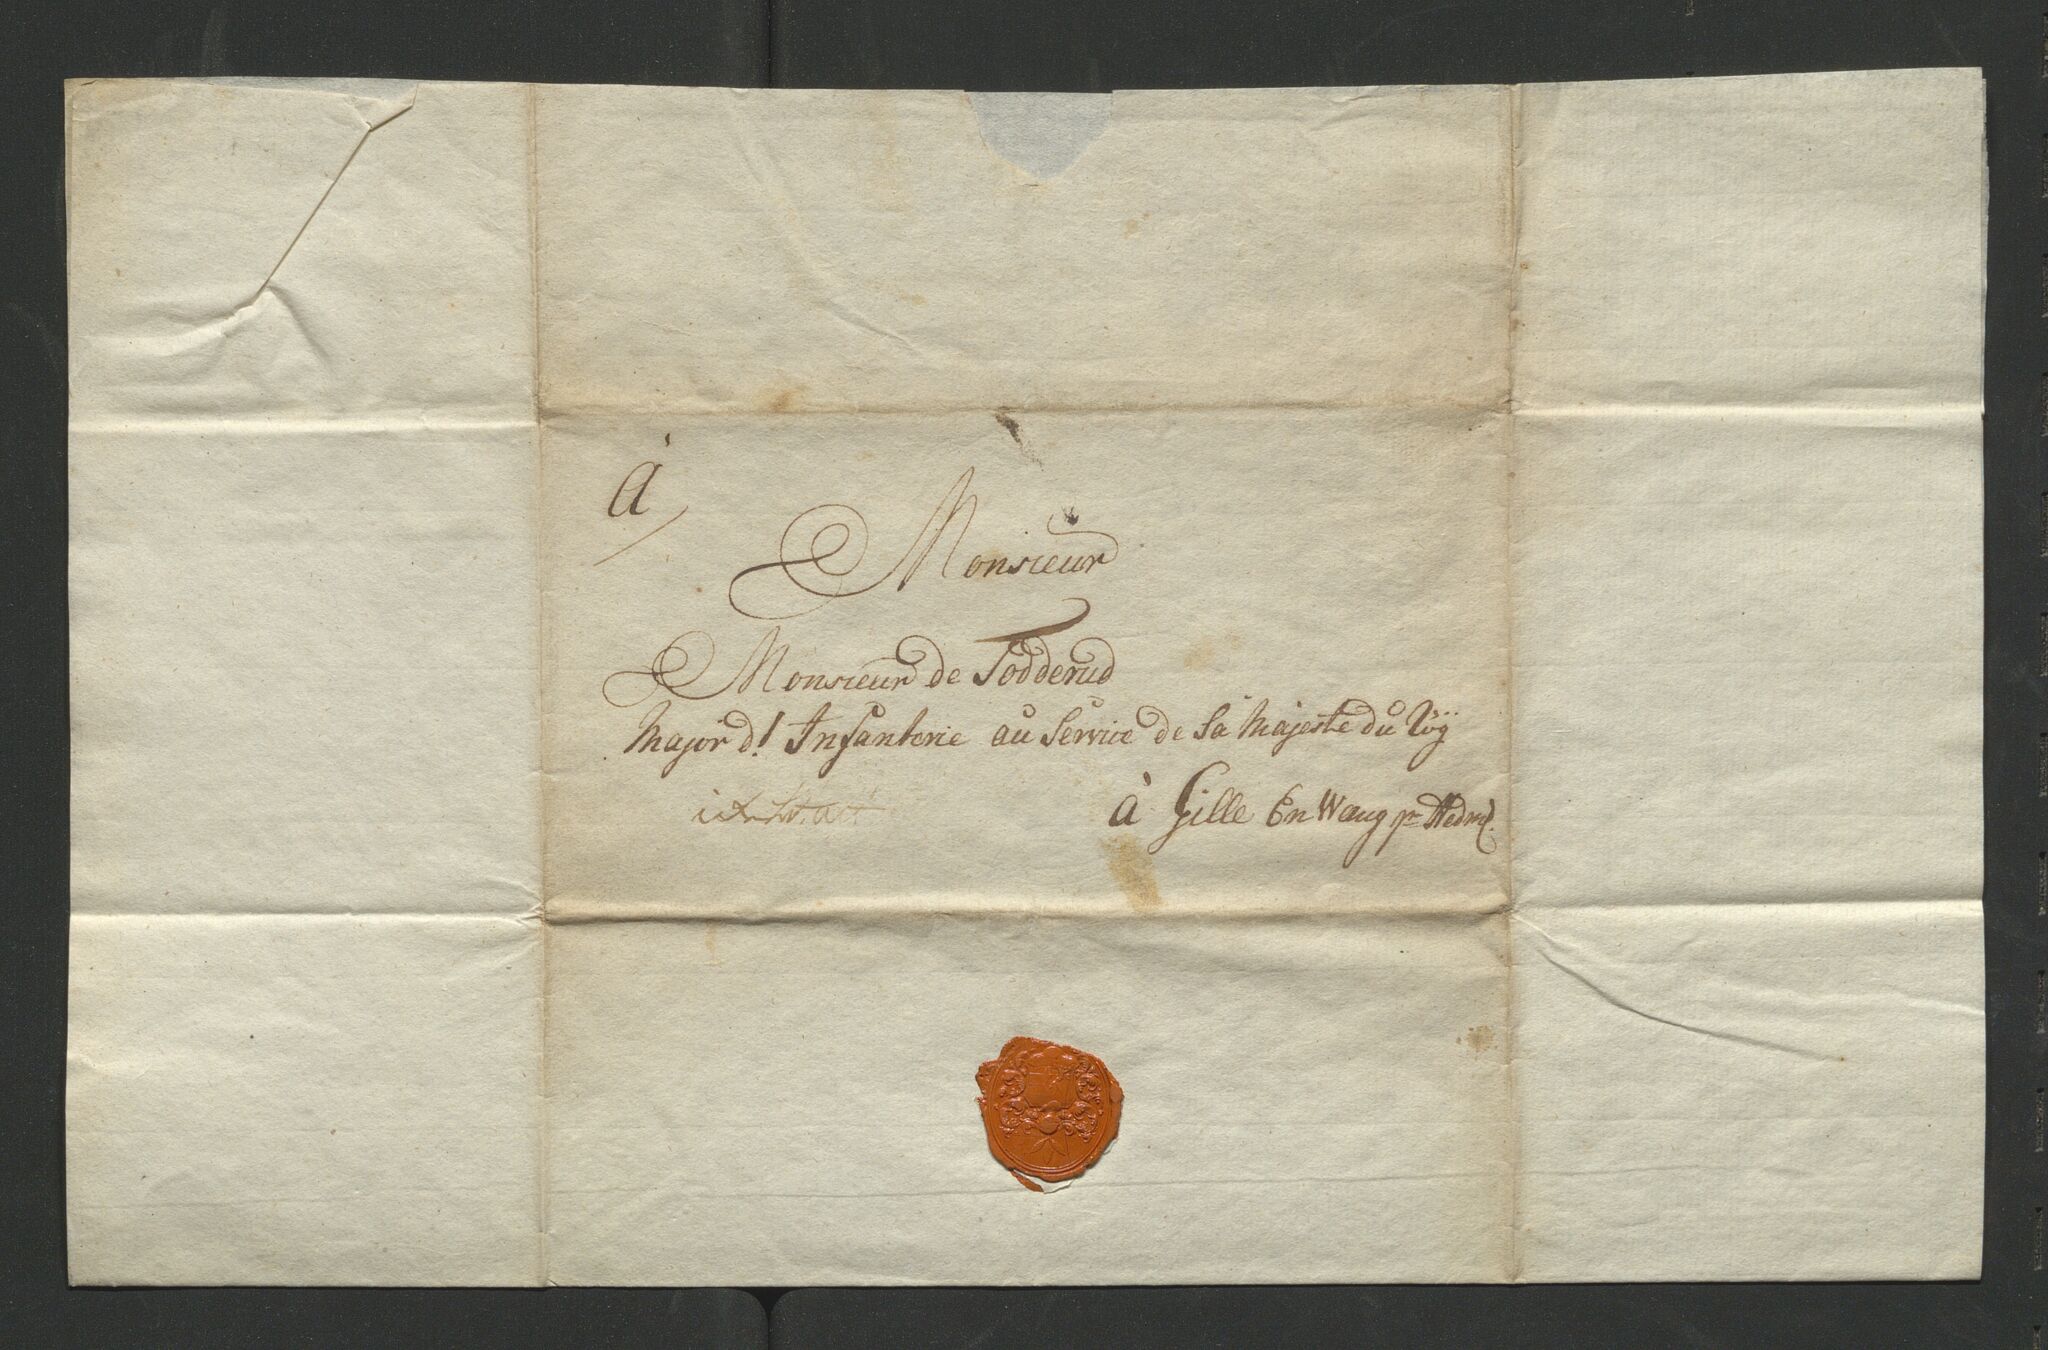 à
Monsieur
Monsieur de Todderud
Major d'Infanterie au Service de Sa Majeste du Roÿ
à Gille En Wang pr Hedm